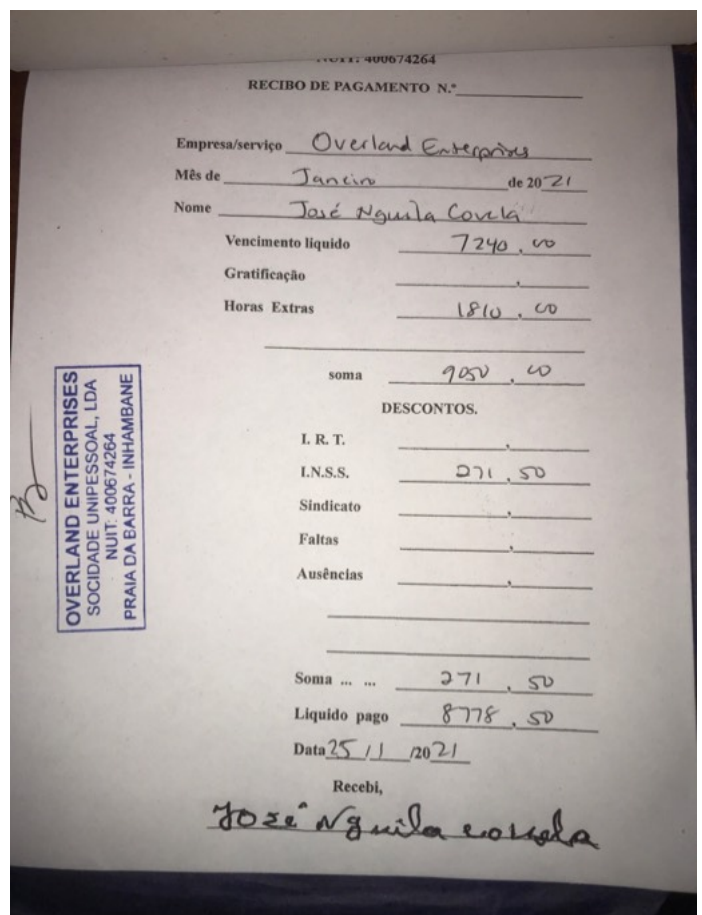 NUIT: 400674264
RECIBO DE PAGAMENTO N.º
Empresa/serviço Overland Enterprises
Mês de Janeiro de 2021
Nome José Nguila Covela
Vencimento liquido 7240.00
Gratificação .
Horas Extras 1810.00
soma 9050.00
DESCONTOS.
I. R. T. .
I.N.S.S. 271.50
Sindicato .
Faltas .
Ausências .
Soma ... ... 271.50
Liquido pago 8778.50
Data 25/1/2021
Recebi,
José Nguila covela
OVERLAND ENTERPRISES
SOCIDADE UNIPESSOAL, LDA
NUIT: 400674264
PRAIA DA BARRA - INHAMBANE